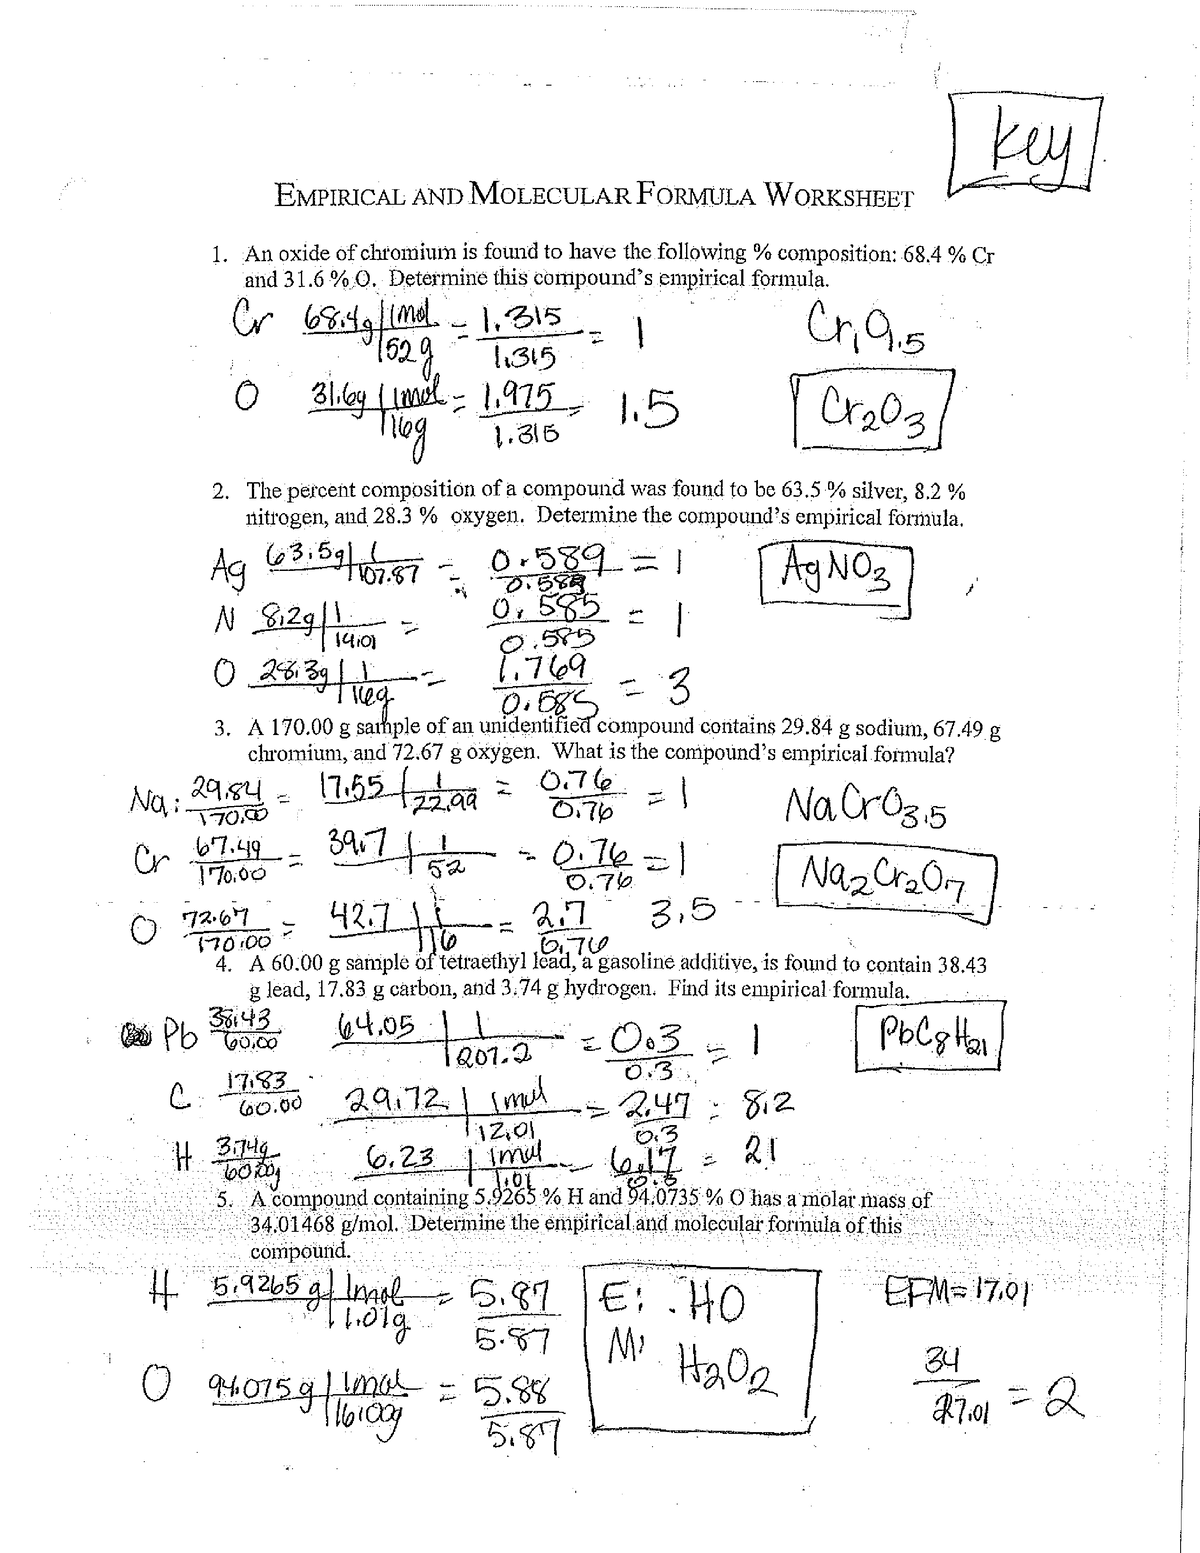 Key
EMPIRICAL AND MOLECULAR FORMULA WORKSHEET
1. An oxide of chromium is found to have the following % composition: 68.4 % Cr
and 31.6 % O. Determine this compound's empirical formula.
Cr 68.4g | 1mol = 1.315 = 1 Cr₁O₁.₅
152g 1.315
O 31.6g | 1mol = 1.975 = 1.5 Cr₂O₃
16g 1.315
2. The percent composition of a compound was found to be 63.5 % silver, 8.2 %
nitrogen, and 28.3 % oxygen. Determine the compound's empirical formula.
Ag 63.5g | 1 = 0.589 = 1 AgNO₃
107.87 0.589
N 8.2g | 1 = 0.585 = 1
14.01 0.585
O 28.3g | 1 = 1.769 = 3
16g 0.585
3. A 170.00 g sample of an unidentified compound contains 29.84 g sodium, 67.49 g
chromium, and 72.67 g oxygen. What is the compound's empirical formula?
Na: 29.84 = 17.55 | 1 = 0.76 = 1 NaCrO₃.₅
170.00 22.99 0.76
Cr 67.49 = 39.7 | 1 = 0.76 = 1 Na₂Cr₂O₇
170.00 52 0.76
O 72.67 = 42.7 | 1 = 2.7 3.5
170.00 16 0.76
4. A 60.00 g sample of tetraethyl lead, a gasoline additive, is found to contain 38.43
g lead, 17.83 g carbon, and 3.74 g hydrogen. Find its empirical formula.
Pb 38.43 64.05 | 1 = 0.3 = 1 PbC₈H₂₁
60.00 207.2 0.3
C 17.83 29.72 | 1mol = 2.47 = 8.2
60.00 12.01 0.3
H 3.74g 6.23 | 1mol = 6.17 = 21
60.00g 1.01
5. A compound containing 5.9265 % H and 94.0735 % O has a molar mass of
34.01468 g/mol. Determine the empirical and molecular formula of this
compound.
H 5.9265 g | 1mol = 5.87 E: HO EFM = 17.01
1.01g 5.87
M: H₂O₂
O 94.075 g | 1mol = 5.88 34 = 2
16.00g 5.87